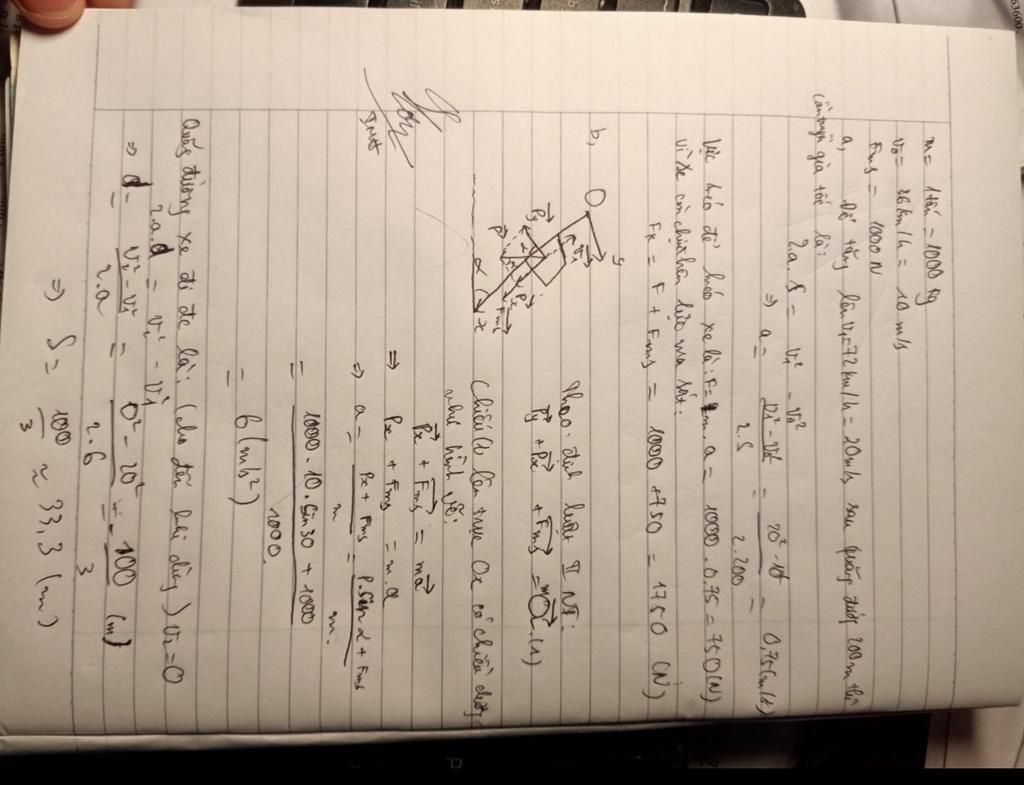 m = 1 tấn = 1000 kg
v₀ = 36 km/h = 10 m/s
Fms = 1000 N
a, Để tăng lên v₁=72 km/h = 20m/s sau quãng đường 200m thì
gia tốc là:
2a.S = v₁² - v₀²
=> a = = = 0,75 (m/s²)
2.S 2.200
Lực kéo để kéo xe là: F = m.a = 1000.0,75 = 750(N)
Vì xe còn chịu thêm lực ma sát:
Fk = F + Fms = 1000 + 750 = 1750 (N)
b,
O y
Py
P
Px
Fms
α x
Theo định luật II NT:
Py + Px + Fms = ma (1)
Chiếu (1) lên trục Ox có chiều dương
như hình vẽ:
Px + Fms = ma
=> Px + Fms = m.a
=> a = Px + Fms / m = P.sin α + Fms / m.
= 1000.10.sin 30 + 1000 / 1000.
= 6 (m/s²)
Quãng đường xe đi đc là: (cho đến khi dừng) v₂ = 0
2.a.d = v₂² - v₁²
=> d = v₂² - v₁² / 2.a = 0² - 20² / 2.6 = - 100 / 3 (m)
=> S = 100 / 3 ≈ 33,3 (m)